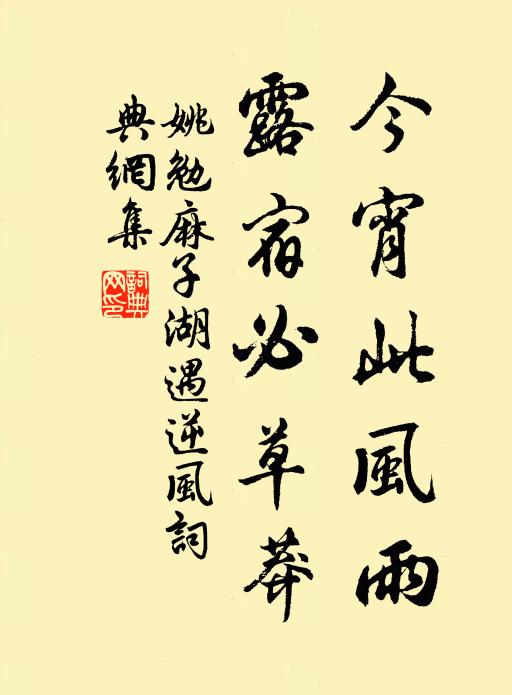 今宵此風雨
露宿必草莽
姚勉麻子湖遇逆風詞
典網集
詞典網印